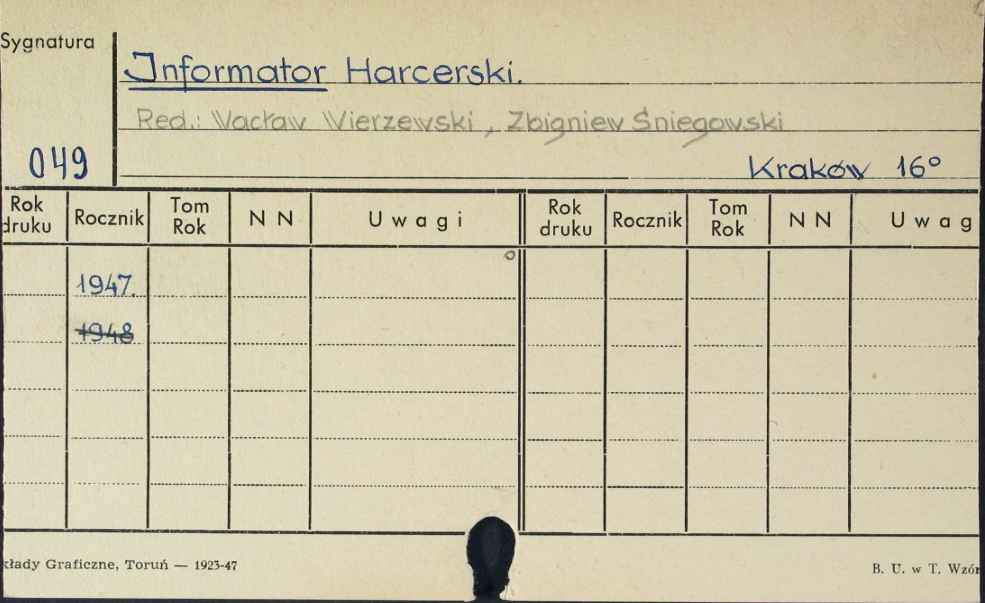 Sygnatura
Informator Harcerski.
Red.: Wacław Wierzewski, Zbigniew Śniegowski
049
Kraków 16°
Rok druku Rocznik Tom Rok N N Uwagi Rok druku Rocznik Tom Rok N N Uwag
1947.
1948
kłady Graficzne, Toruń — 1923-47
B. U. w T. Wzór